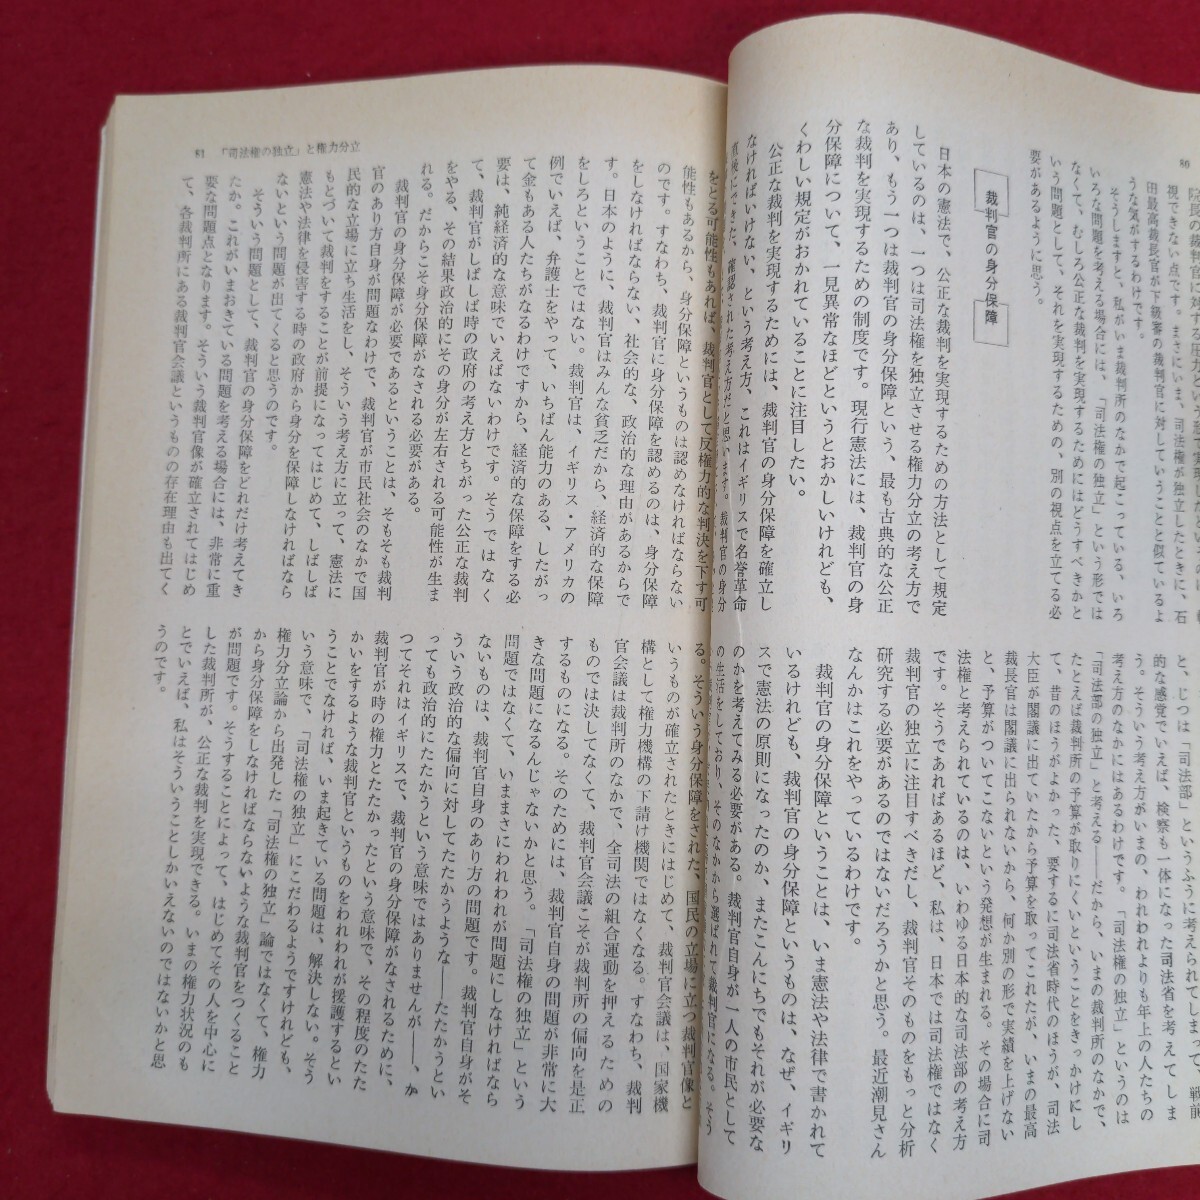 80
視できない点です。まさにいま、平賀書簡が出たときに、石
田最高裁長官が下級審の裁判官に対していうことと似ているよ
うな気がするわけです。
そうしますと、私がいま裁判所のなかで起こっている、いろ
いろな問題を考える場合には、「司法権の独立」という形では
なくて、むしろ公正な裁判を実現するためにはどうすべきかと
いう問題として、それを実現するための、別の視点を立てる必
要があるように思う。
裁判官の身分保障
日本の憲法で、公正な裁判を実現するための方法として規定
しているのは、一つは司法権を独立させる権力分立の考え方で
あり、もう一つは裁判官の身分保障という、最も古典的な公正
な裁判を実現するための制度です。現行憲法には、裁判官の身
分保障について、一見異常なほどというとおかしいけれども、
くわしい規定がおかれていることに注目したい。
公正な裁判を実現するためには、裁判官の身分保障を確立し
なければいけない、という考え方、これはイギリスで名誉革命
直後にできた、確認された考え方だと思います。裁判官の身分
と、じつは「司法部」というふうに考えられてしまって、戦前
的な感覚でいえば、検察も一体になった司法省を考えてしま
う。そういう考え方がいまの、われわれよりも年上の人たちの
考え方のなかにはあるわけです。「司法権の独立」というのは
「司法部の独立」と考える——だから、いまの裁判所のなかで、
たとえば裁判所の予算が取りにくいということをきっかけにし
て、昔のほうがよかった、要するに司法省時代のほうが、司法
大臣が閣議に出ていたから予算を取ってこれたが、いまの最高
裁長官は閣議に出られないから、何か別の形で実績を上げない
と、予算がついてこないという発想が生まれる。その場合に司
法権と考えられているのは、いわゆる日本的な司法部の考え方
です。そうであればあるほど、私は、日本では司法権ではなく
裁判官の独立に注目すべきだし、裁判官そのものをもっと分析
研究する必要があるのではないだろうかと思う。最近潮見さん
なんかはこれをやっているわけです。
裁判官の身分保障ということは、いま憲法や法律で書かれて
いるけれども、裁判官の身分保障というものは、なぜ、イギリ
スで憲法の原則になったのか、またこんにちでもそれが必要な
のかを考えてみる必要がある。裁判官自身が一人の市民として
の生活をしており、そのなかから選ばれて裁判官になる。そう
81 「司法権の独立」と権力分立
をとる可能性もあれば、裁判官として反権力的な判決を下す可
能性もあるから、身分保障というものは認めなければならない
のです。すなわち、裁判官に身分保障を認めるのは、身分保障
をしなければならない、社会的な、政治的な理由があるからで
す。日本のように、裁判官はみんな貧乏だから、経済的な保障
をしろということではない。裁判官は、イギリス・アメリカの
例でいえば、弁護士をやって、いちばん能力のある、したがっ
て金もある人たちがなるわけですから、経済的な保障をする必
要は、純経済的な意味でいえばないわけです。そうではなく
て、裁判官がしばしば時の政府の考え方とちがった公正な裁判
をやる、その結果政治的にその身分が左右される可能性が生ま
れる。だからこそ身分保障がなされる必要がある。
裁判官の身分保障が必要であるということは、そもそも裁判
官のあり方自身が問題なわけで、裁判官が市民社会のなかで国
民的な立場に立ち生活をし、そういう考え方に立って、憲法に
もとづいて裁判をすることが前提になってはじめて、しばしば
憲法や法律を侵害する時の政府から身分を保障しなければなら
ないという問題が出てくると思うのです。
そういう問題として、裁判官の身分保障をどれだけ考えてき
たか。これがいまおきている問題を考える場合には、非常に重
要な問題点となります。そういう裁判官像が確立されてはじめ
て、各裁判所にある裁判官会議というものの存在理由も出てく
る。そういう身分保障をされた、国民の立場に立つ裁判官像と
いうものが確立されたときにはじめて、裁判官会議は、国家機
構として権力機構の下請け機関ではなくなる。すなわち、裁判
官会議は裁判所のなかで、全司法の組合運動を押えるための
ものでは決してなくて、裁判官会議こそが裁判所の偏向を是正
するものになる。そのためには、裁判官自身の問題が非常に大
きな問題になるんじゃないかと思う。「司法権の独立」という
問題ではなくて、いままさにわれわれが問題にしなければなら
ないものは、裁判官自身のあり方の問題です。裁判官自身がそ
ういう政治的な偏向に対してたたかうような——たたかうとい
っても政治的にたたかうという意味ではありませんが——、か
つてそれはイギリスで、裁判官の身分保障がなされるために、
裁判官が時の権力とたたかったという意味で、その程度のたた
かいをするような裁判官というものをわれわれが援護するとい
うことでなければ、いま起きている問題は、解決しない。そう
いう意味で、「司法権の独立」にこだわるようですけれども、
権力分立論から出発した「司法権の独立」論ではなくて、権力
から身分保障をしなければならないような裁判官をつくること
が問題です。そうすることによって、はじめてその人を中心に
した裁判所が、公正な裁判を実現できる。いまの権力状況のも
とでいえば、私はそういうことしかいえないのではないかと思
うのです。